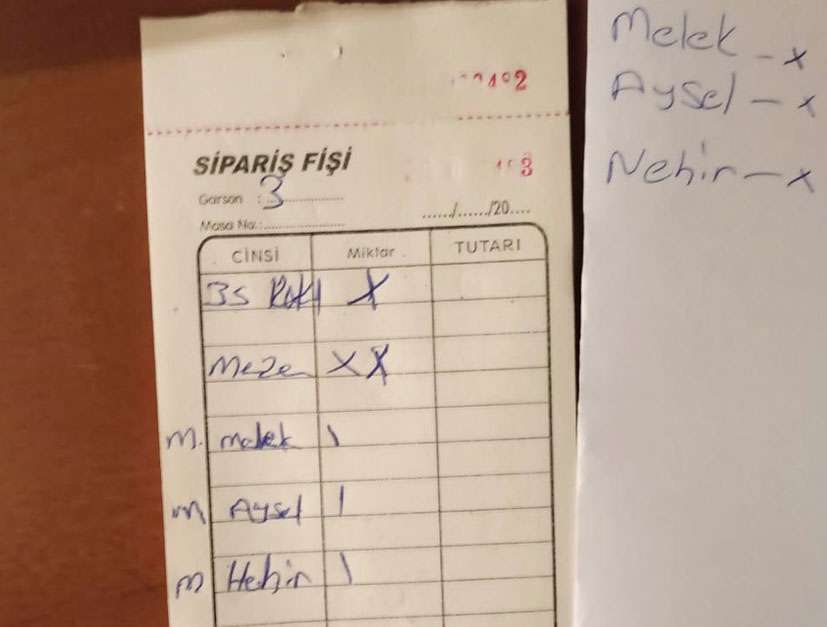 SİPARİŞ FİŞİ
Garson : 3
Masa No.:
....../....../20....
CİNSİ Miktar TUTARI
35 Rakı X
Meze X X
M. Melek 1
M Aysel 1
M Hehir 1
Melek - x
Aysel - x
Nehir - x